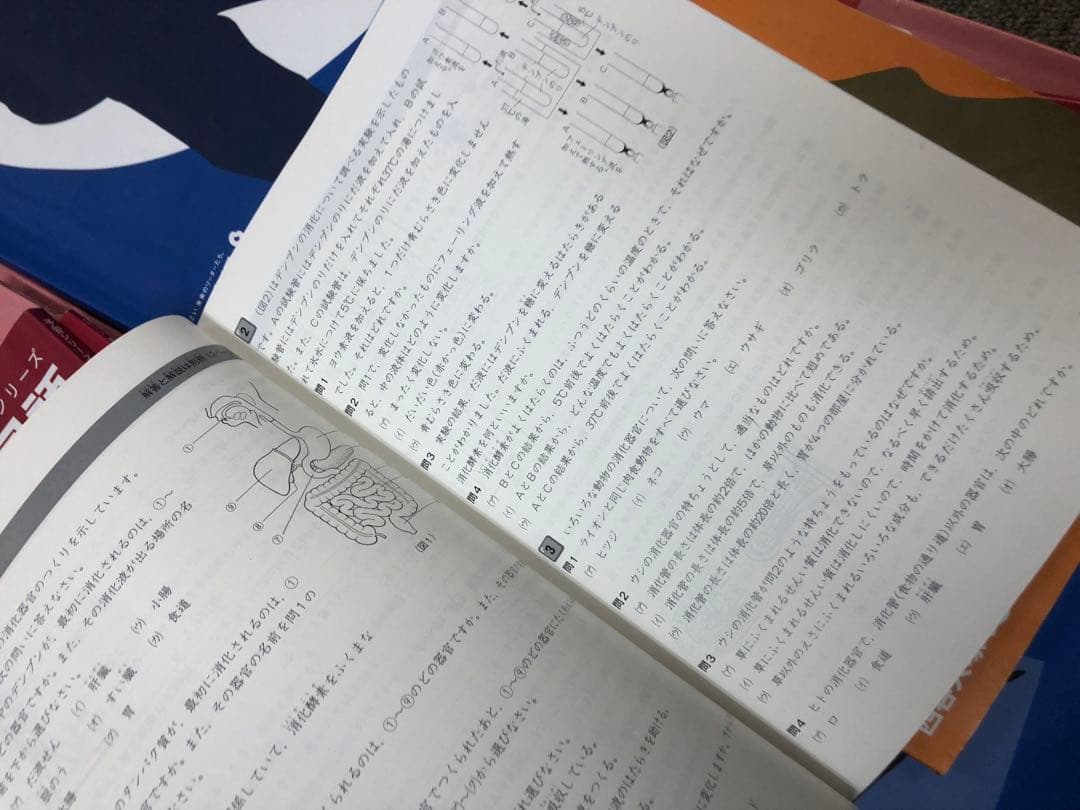 解答と解説は別冊
の消化器官のつくりを示しています。
次の問いに答えなさい。
中のデンプンが、最初に消化されるのは、①〜
どの器官ですか。また、その消化液が出る場所の名
前を下から選びなさい。
だ液せん (イ) 肝臓 (ウ) 小腸
胆のう (オ) すい臓 (カ) 食道
(ク) 胃
のタンパク質が、最初に消化されるのは、①
官ですか。また、その器官の名前を問1の
係していて、消化酵素をふくまな
られるのは、①〜⑨のどの器官ですか。また、
官でつくられたあと、①〜⑨のどの器官にたくわ
(ア)〜(ク)から選びなさい。
れ選びなさい。
吸収している。
をつくる。
液のはたらきを助ける。
①
⑨
⑧
⑦
(図1)
2 (図2)はデンプンの消化について調べる実験を示したもの
Aの試験管にはデンプンのりにだ液を加えて入れ、Bの試
験管にはデンプンのりだけを入れてそれぞれ37℃の湯につけまし
た。また、Cの試験管は、デンプンのりにだ液を加えたものを入
れて氷水につけて5℃に保ちました。
問1 ヨウ素液を加えると、1つだけ青むらさき色に変化しません
でした。それはどれですか。
問2 問1で、変化しなかったものにフェーリング液を加えて熱す
ると、中の液体はどのように変化しますか。
(ア) まったく変化しない。
(イ) だいだい色(赤かっ色)に変わる。
(ウ) 青むらさき色に変わる。
問3 実験の結果、だ液にはデンプンを糖に変えるはたらきがある
ことがわかりました。だ液にふくまれる、デンプンを糖に変える
消化酵素を何といいますか。
問4 消化酵素がよくはたらくのは、ふつうどのくらいの温度のときで、それはなぜですか。
(ア) BとCの結果から、5℃前後でよくはたらくことがわかる。
(イ) AとBの結果から、どんな温度でもよくはたらくことがわかる。
(ウ) AとCの結果から、37℃前後でよくはたらくことがわかる。
A
B
C
(図2)
3 いろいろな動物の消化器官について、次の問いに答えなさい。
問1 ライオンと同じ肉食動物をすべて選びなさい。
(ア) ヒツジ (イ) ネコ (ウ) ウマ (エ) ウサギ (オ) ゴリラ (カ) トラ
問2 ウシの消化器官の特ちょうとして、適当なものはどれですか。
(ア) 消化管の長さは体長の約2倍で、ほかの動物に比べて短めである。
(イ) 消化管の長さは体長の約5倍で、草以外のものも消化できる。
(ウ) 消化管の長さは体長の約20倍と長く、胃が4つの部屋に分かれている。
問3 ウシの消化管が問2のような特ちょうをもっているのはなぜですか。
(ア) 草にふくまれるせんい質は消化できないので、なるべく早く排出するため。
(イ) 草にふくまれるせんい質は消化しにくいので、時間をかけて消化するため。
(ウ) 草以外のえさにふくまれるいろいろな成分も、できるだけたくさん吸収するため。
問4 ヒトの消化器官で、消化管(食物の通り道)以外の器官は、次の中のどれですか。
(ア) 口 (イ) 食道 (ウ) 肝臓 (エ) 胃 (オ) 大腸